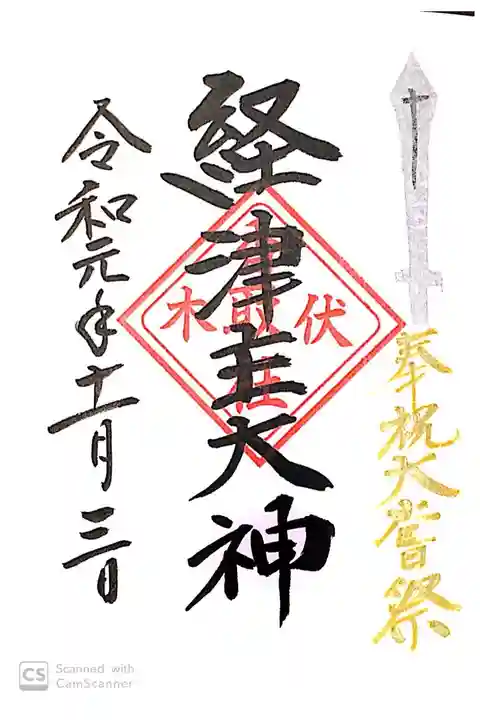 奉祝大嘗祭
経津主大神
伏木
取社
令和元年十一月三日
CS Scanned with
CamScanner